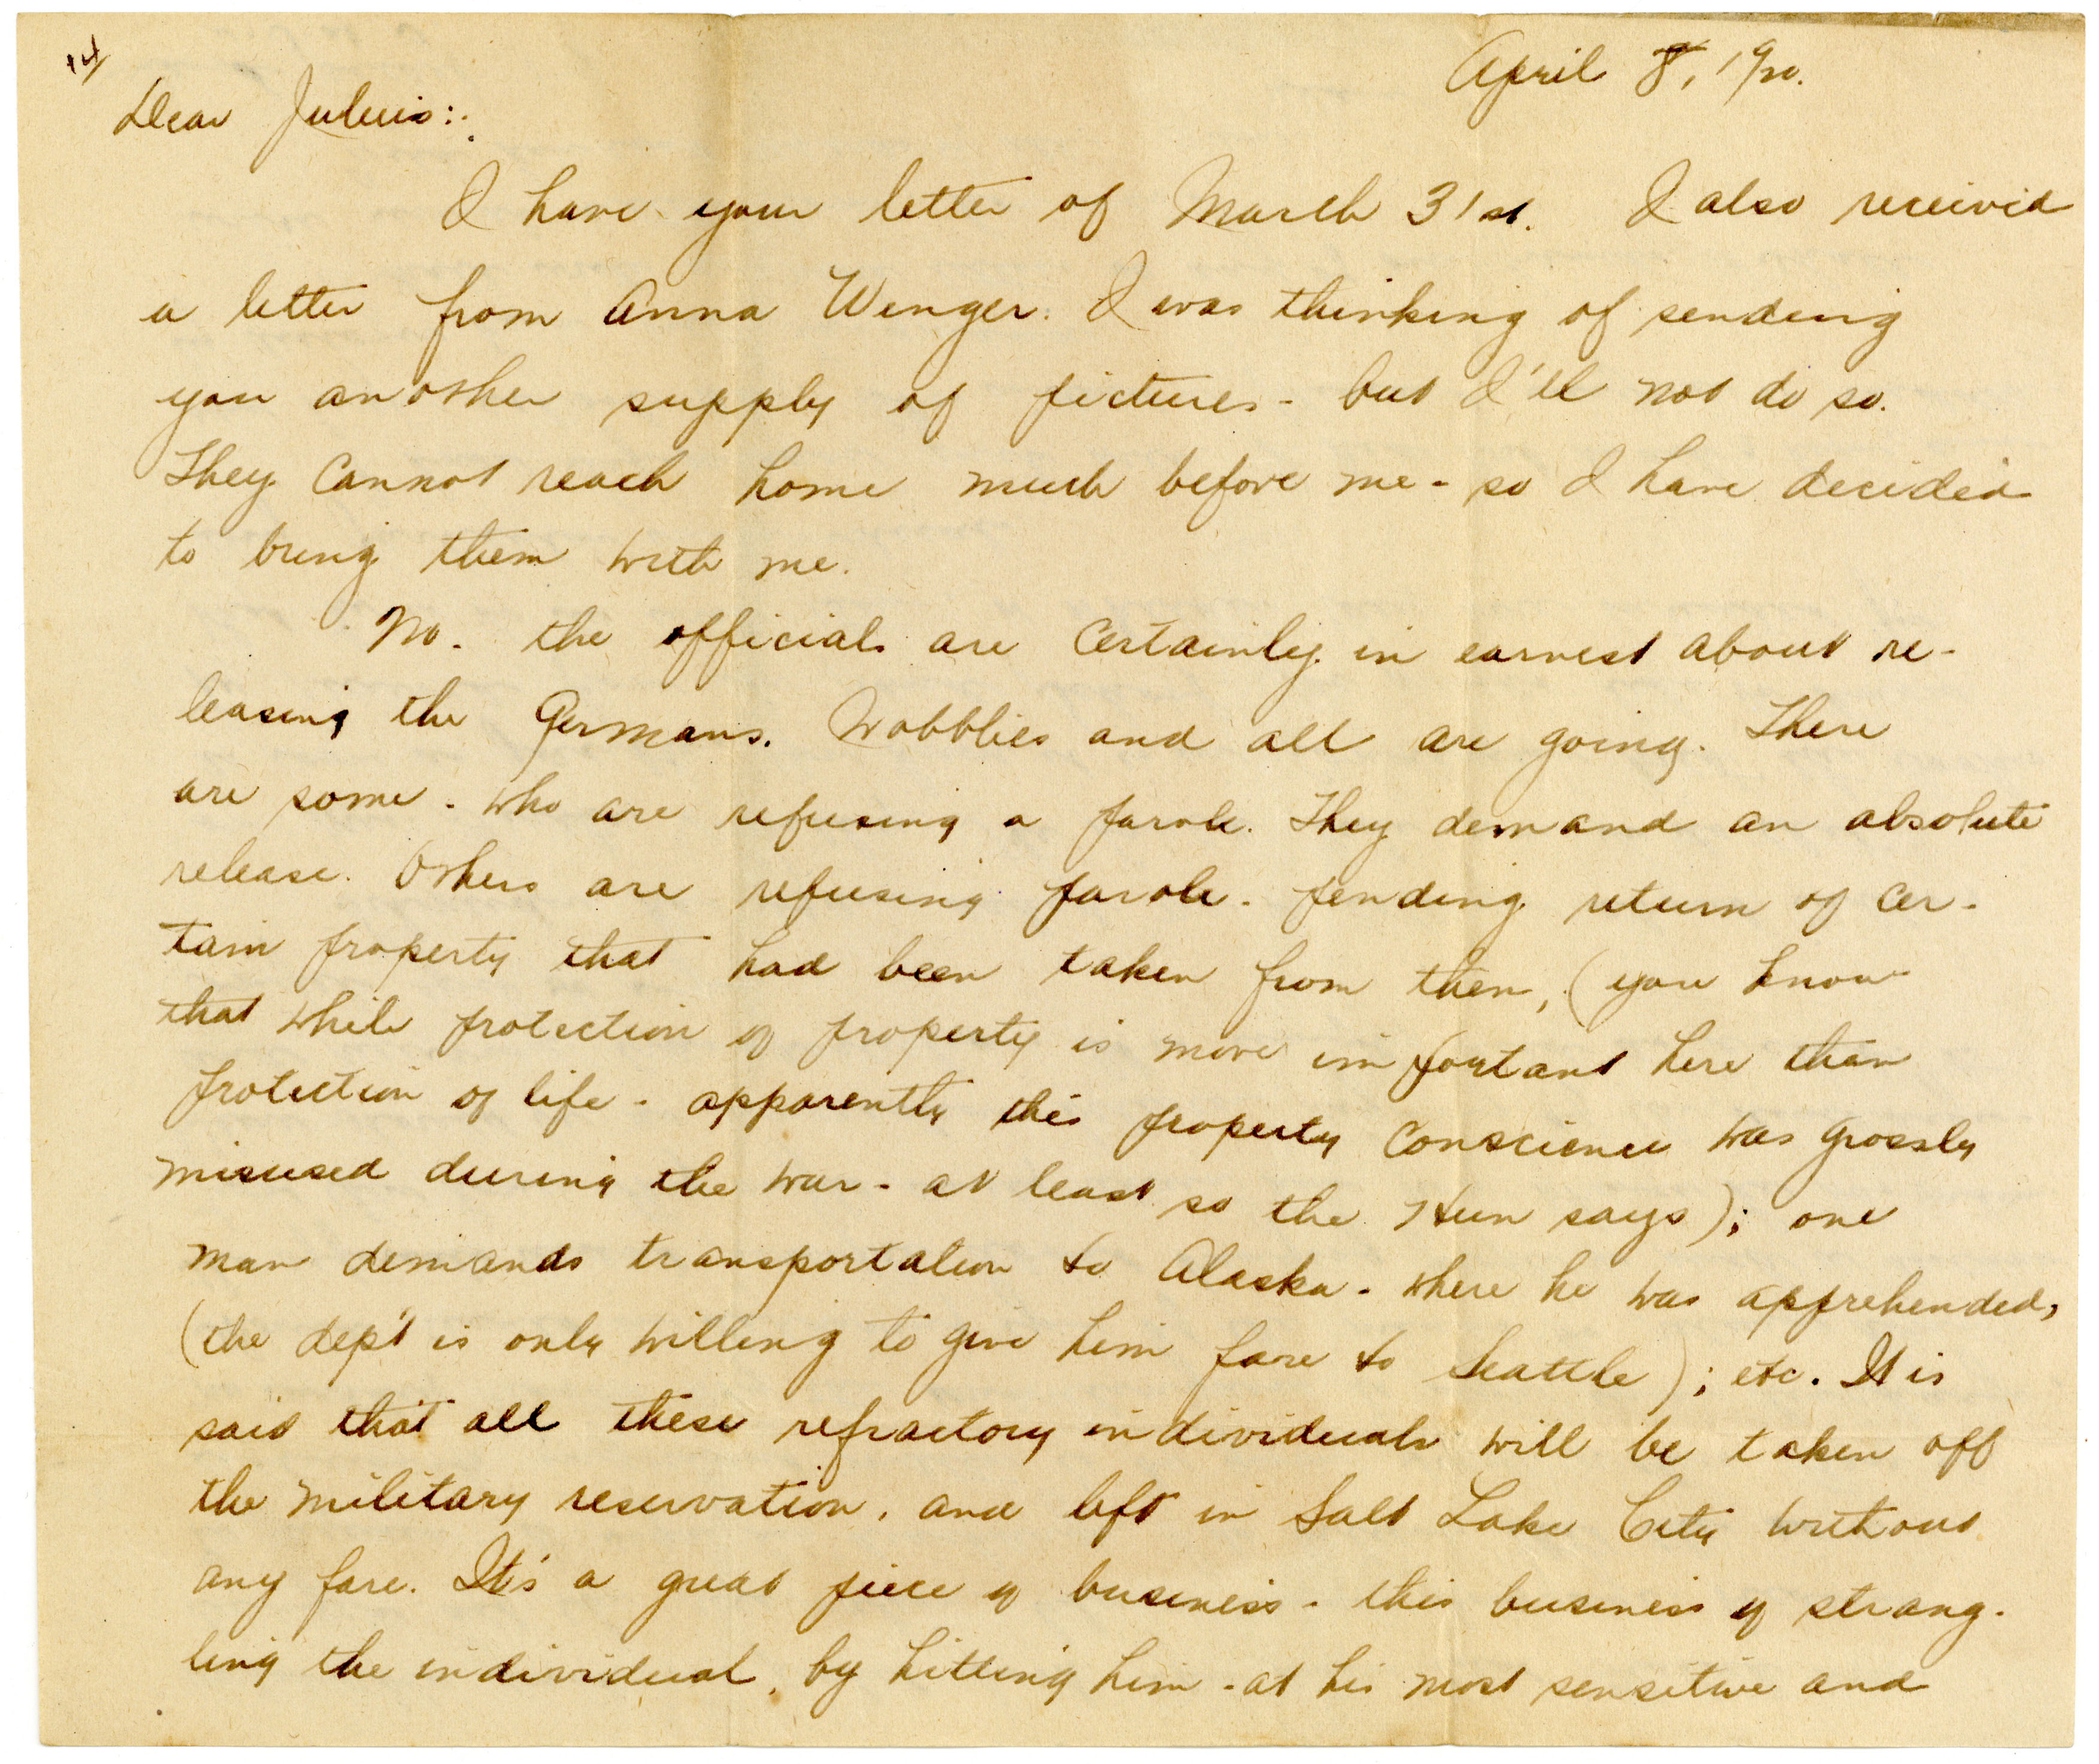 14
April 8, 1920.
Dear Julius:.
I have your letter of March 31st. I also received
a letter from Anna Wenger. I was thinking of sending
you another supply of pictures - but I'll not do so.
They cannot reach home much before me - so I have decided
to bring them with me.
No. the officials are certainly in earnest about re-
leasing the Germans. Wobblies and all are going. There
are some - who are refusing a parole. They demand an absolute
release. Others are refusing parole - pending return of cer-
tain property that had been taken from them, (you know
that while protection of property is more important here than
protection of life - apparently this property conscience was grossly
misused during the war - at least so the Hun says); one
man demands transportation to Alaska - where he was apprehended,
(the dep't is only willing to give him fare to Seattle); etc. It is
said that all these refractory individuals will be taken off
the military reservation, and left in Salt Lake City without
any fare. It's a great piece of business - this business of strang-
ling the individual, by hitting him - at his most sensitive and